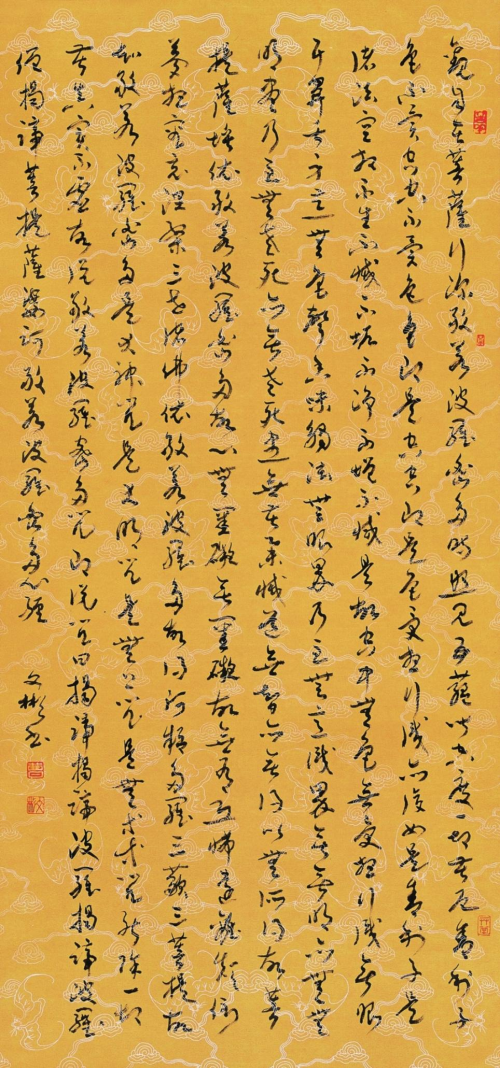 觀自在菩薩行深般若波羅蜜多時照見五蘊皆空度一切苦厄舍利子
色不異空空不異色色即是空空即是色受想行識亦復如是舍利子是
諸法空相不生不滅不垢不淨不增不減是故空中無色無受想行識無眼
耳鼻舌身意無色聲香味觸法無眼界乃至無意識界無無明亦無無
明盡乃至無老死亦無老死盡無苦集滅道無智亦無得以無所得故菩
提薩埵依般若波羅蜜多故心無罣礙無罣礙故無有恐怖遠離顛倒
夢想究竟涅槃三世諸佛依般若波羅多故得阿耨多羅三藐三菩提故
知般若波羅蜜多是大神咒是大明咒是無上咒是無等等咒能除一切
苦真實不虛故說般若波羅蜜多咒即說咒曰揭諦揭諦波羅揭諦波羅
僧揭諦菩提薩婆訶般若波羅蜜多心經
文彬書